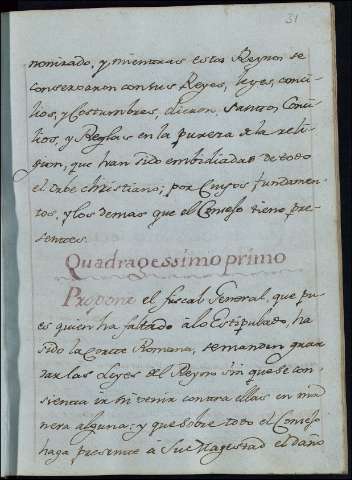 31
nominado, y mientras estos Reynos se
conservaron con sus Reyes, leyes, conci-
lios, y Costumbres, dieron Santos, Conci-
lios, y Reglas en la pureza de la reli-
gion, que han sido embidiadas de todo
el Orbe christiano; por Cuyos fundamen-
tos, y los demas que el Consejo tiene pre-
sentes.
Quadragessimo primo
Propone el fiscal General, que pu-
es quien ha faltado â lo Estipulado, ha
sido la Corte Romana, se manden guar
dar las Leyes del Reyno sin que se con-
sienta ir ni venir contra ellas en ma
nera alguna: y que sobre todo el Consejo
haga presente â Su Magestad el daño